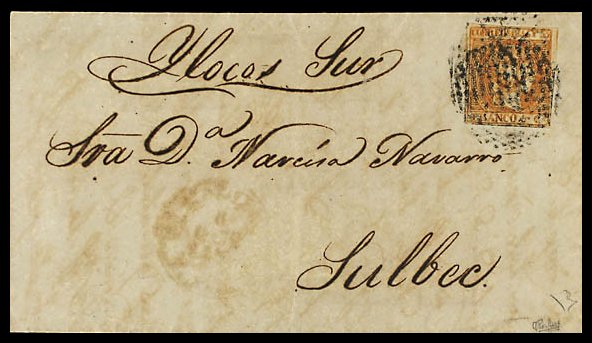 Ylocos Sur
CORREOS
FRANCO
Sra D.ª Narcisa Navarro
Sulbec.
13